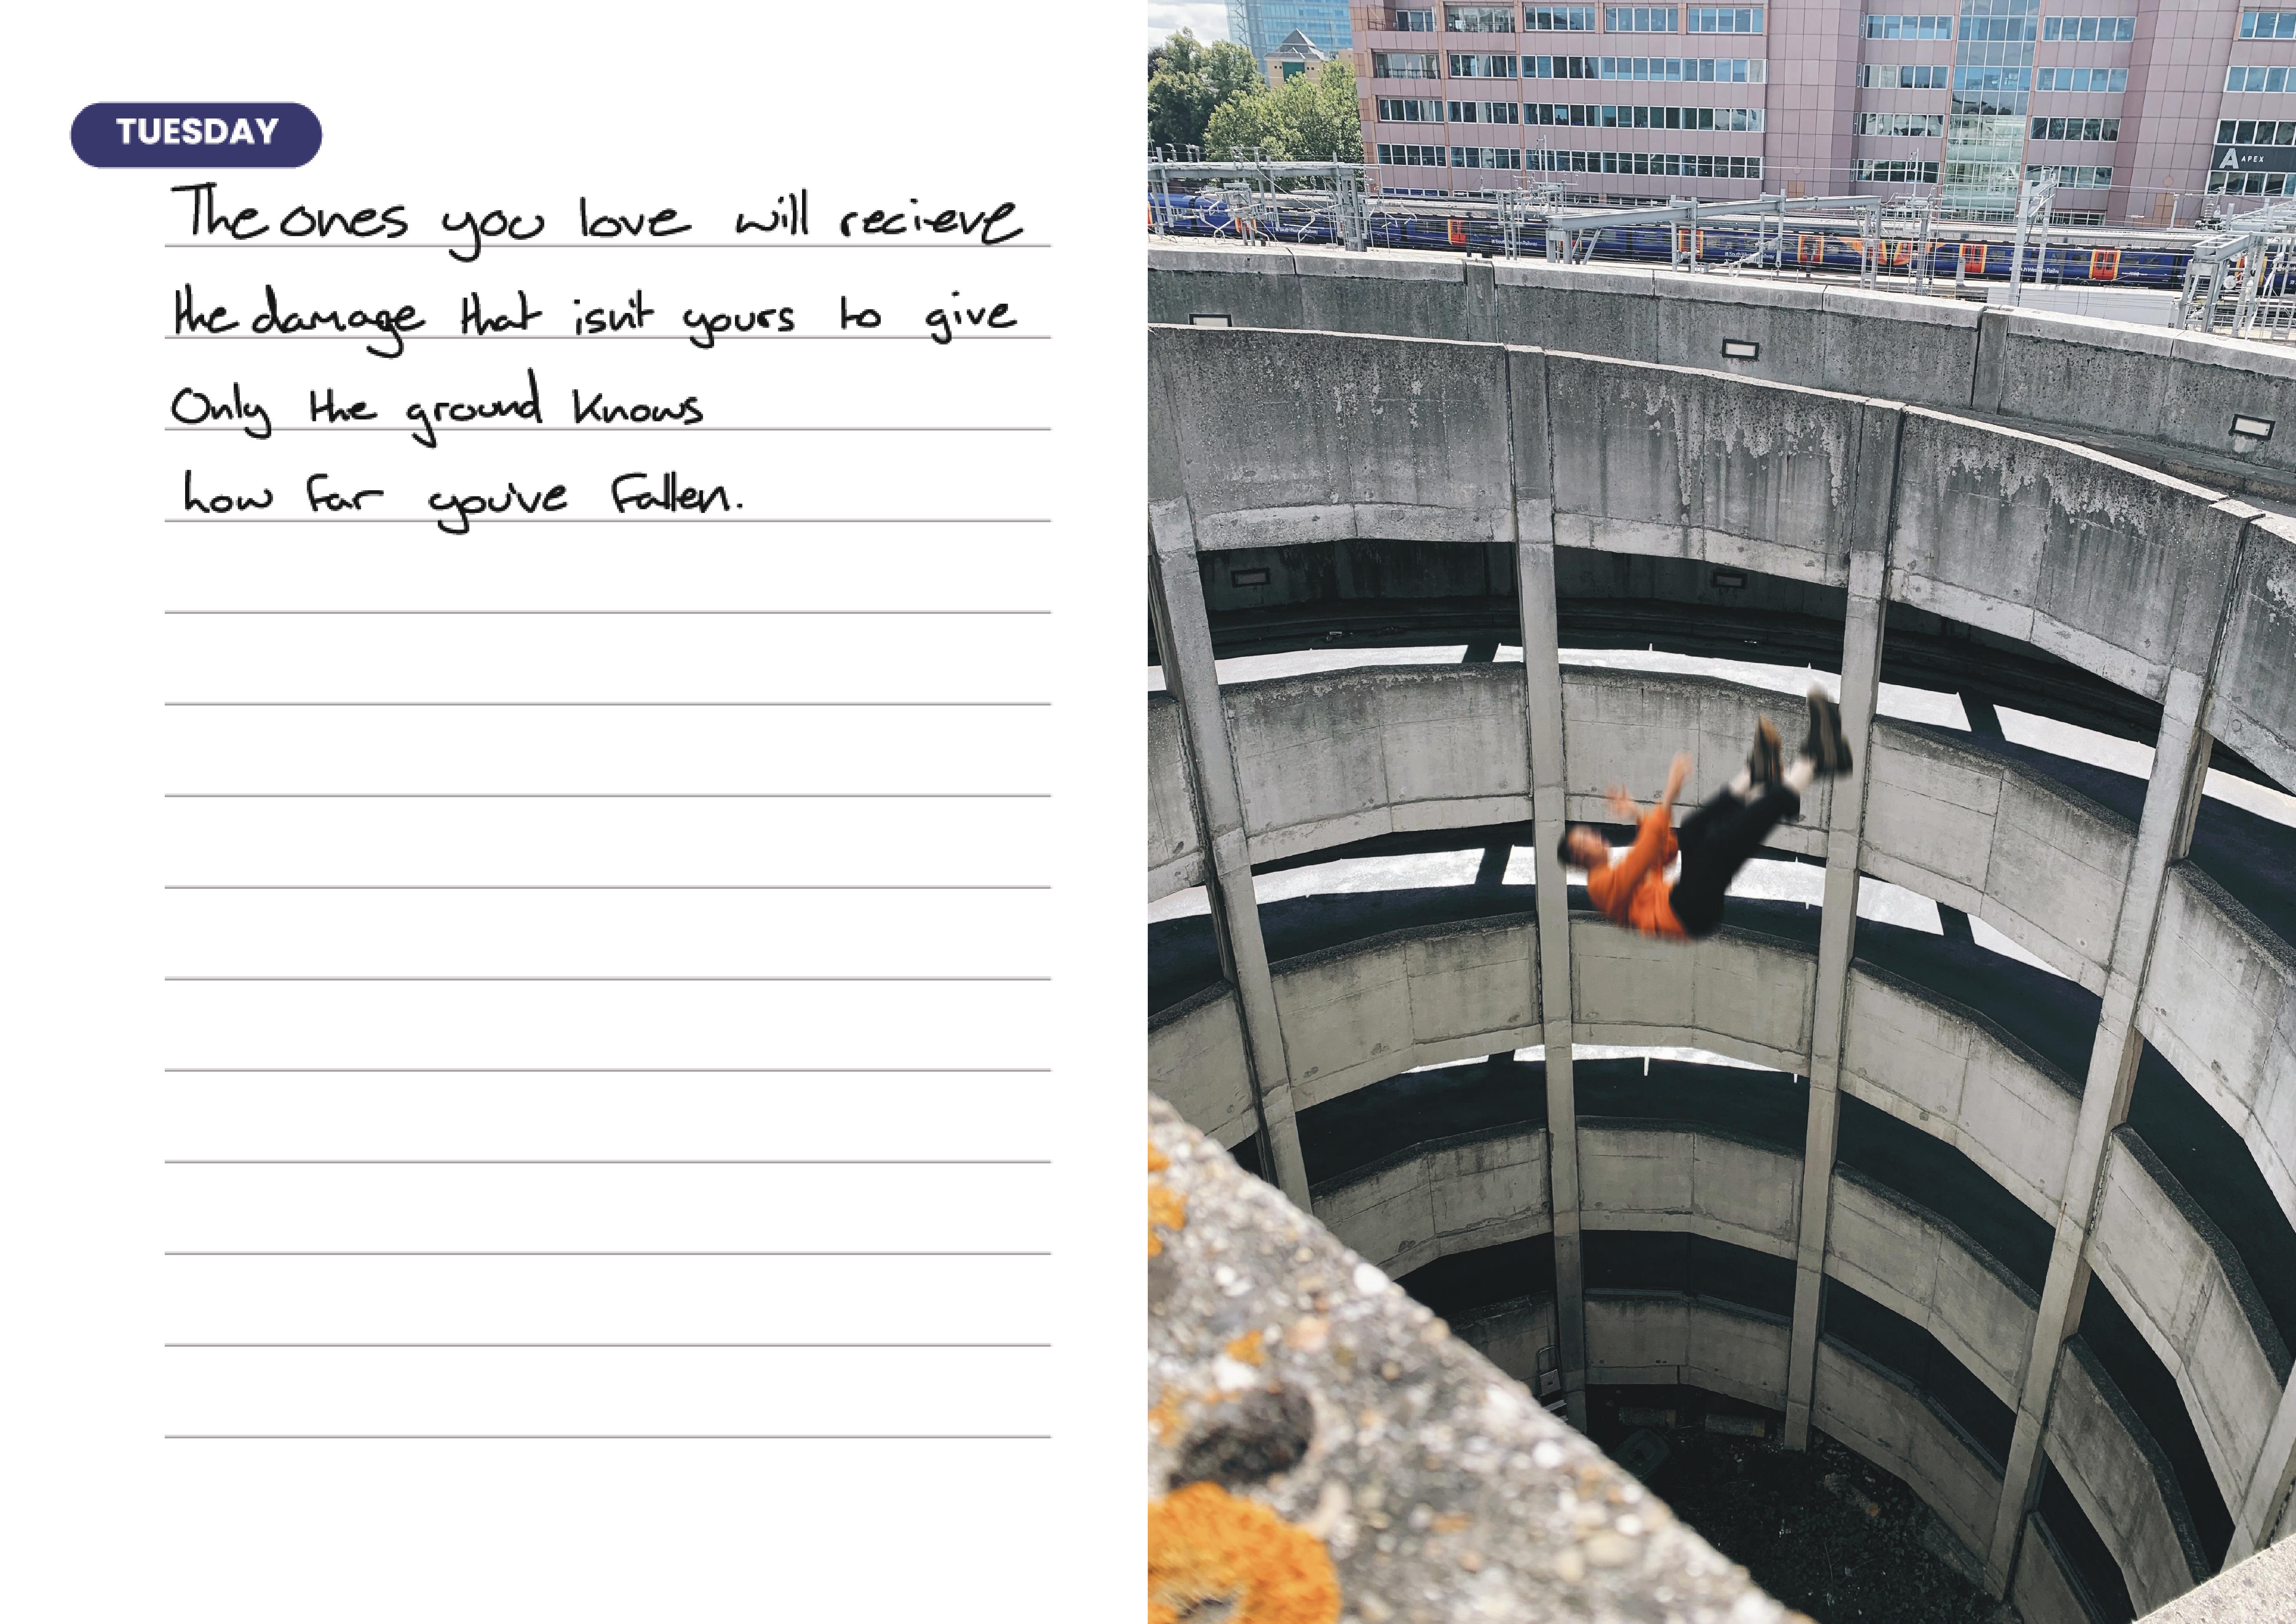 TUESDAY
The ones you love will recieve
the damage that isn't yours to give
Only the ground knows
how far you've fallen.
A APEX